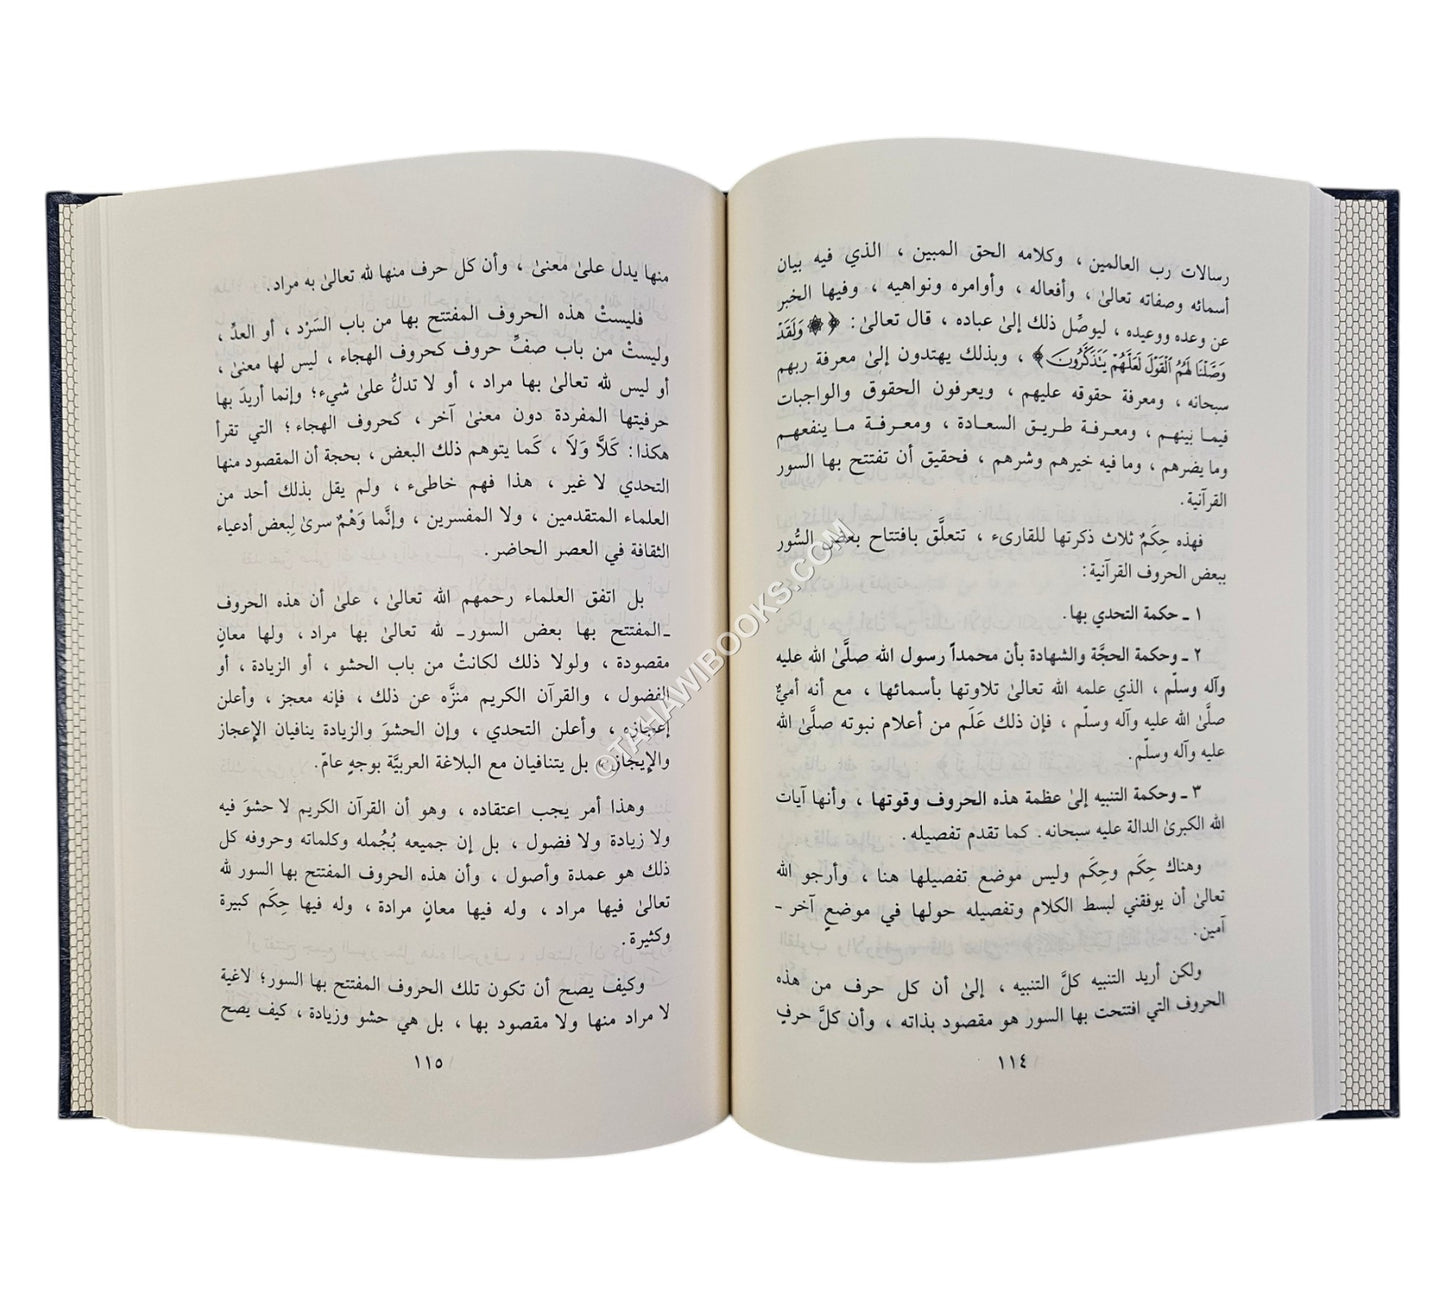 رسالات رب العالمين ، وكلامه الحق المبين ، الذي فيه بيان
أسمائه وصفاته تعالىٰ ، وأفعاله ، وأوامره ونواهيه ، وفيها الخبر
عن وعده ووعيده ، ليوصِّل ذلك إلىٰ عباده ، قال تعالىٰ : ﴿ ۞ وَلَقَدْ
وَصَّلْنَا لَهُمُ ٱلْقَوْلَ لَعَلَّهُمْ يَتَذَكَّرُونَ ﴾ ، وبذلك يهتدون إلىٰ معرفة ربهم
سبحانه ، ومعرفة حقوقه عليهم ، ويعرفون الحقوق والواجبات
فيما بينهم ، ومعرفة طريق السعادة ، ومعرفة ما ينفعهم
وما يضرهم ، وما فيه خيرهم وشرهم ، فحقيق أن تفتتح بها السور
القرآنية.
فهذه حِكَمٌ ثلاث ذكرتها للقارىء ، تتعلَّق بافتتاح بعض السُّور
ببعض الحروف القرآنية:
١ ـ حكمة التحدي بها.
٢ ـ وحكمة الحجَّة والشهادة بأن محمداً رسول الله صلَّىٰ الله عليه
وآله وسلّم ، الذي علمه الله تعالىٰ تلاوتها بأسمائها ، مع أنه أميٌّ
صلَّىٰ الله عليه وآله وسلّم ، فإن ذلك عَلَم من أعلام نبوته صلَّىٰ الله
عليه وآله وسلّم.
٣ ـ وحكمة التنبيه إلىٰ عظمة هذه الحروف وقوتها ، وأنها آيات
الله الكبرىٰ الدالة عليه سبحانه. كما تقدم تفصيله.
وهناك حِكَم وحِكَم وليس موضع تفصيلها هنا ، وأرجو الله
تعالىٰ أن يوفقني لبسط الكلام وتفصيله حولها في موضعٍ آخر -
آمين.
ولكن أريد التنبيه كلَّ التنبيه ، إلىٰ أن كل حرف من هذه
الحروف التي افتتحت بها السور هو مقصود بذاته ، وأن كلَّ حرفٍ
١١٤
منها يدل علىٰ معنىٰ ، وأن كل حرف منها لله تعالىٰ به مراد.
فليستْ هذه الحروف المفتتح بها من باب السَرْد ، أو العدِّ ،
وليستْ من باب صفِّ حروف كحروف الهجاء ، ليس لها معنىٰ ،
أو ليس لله تعالىٰ بها مراد ، أو لا تدلُّ علىٰ شيء؛ وإنما أريدَ بها
حرفيتها المفردة دون معنىٰ آخر ، كحروف الهجاء؛ التي تقرأ
هكذا: كَلَّا وَلَا ، كَما يتوهم ذلك البعض ، بحجة أن المقصود منها
التحدي لا غير ، هذا فهم خاطىء ، ولم يقل بذلك أحد من
العلماء المتقدمين ، ولا المفسرين ، وإنَّما وَهْمٌ سرىٰ لِبعض أدعياء
الثقافة في العصر الحاضر.
بل اتفق العلماء رحمهم الله تعالىٰ ، علىٰ أن هذه الحروف
ـ المفتتح بها بعض السور ـ لله تعالىٰ بها مراد ، ولها معانٍ
مقصودة ، ولولا ذلك لكانتْ من باب الحشو ، أو الزيادة ، أو
الفضول ، والقرآن الكريم منزَّه عن ذلك ، فإنه معجز ، وأعلن
إعجازه ، وأعلن التحدي ، وإن الحشوَ والزيادة ينافيان الإعجاز
والإيجاز ، بل يتنافيان مع البلاغة العربيَّة بوجهٍ عامّ.
وهذا أمر يجب اعتقاده ، وهو أن القرآن الكريم لا حشوَ فيه
ولا زيادة ولا فضول ، بل إن جميعه بُجُمله وكلماته وحروفه كل
ذلك هو عمدة وأصول ، وأن هذه الحروف المفتتح بها السور لله
تعالىٰ فيها مراد ، وله فيها معانٍ مرادة ، وله فيها حِكَم كبيرة
وكثيرة.
وكيف يصح أن تكون تلك الحروف المفتتح بها السور؛ لاغية
لا مراد منها ولا مقصود بها ، بل هي حشو وزيادة ، كيف يصح
١١٥
©TAHAWIBOOKS.COM